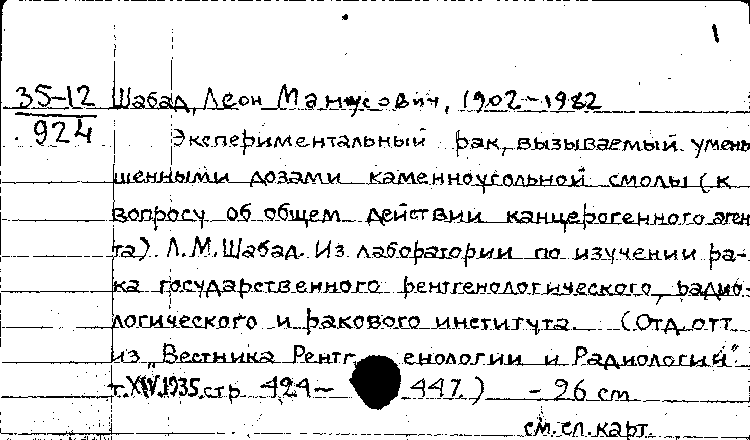 1
35-12 Шабад, Леон Манусович, 1902-1982
924 Экспериментальный рак, вызываемый умень
шенными дозами каменноугольной смолы (к
вопросу об общем действии канцерогенного аген
та). Л.М.Шабад. Из лаборатории по изучении ра-
ка государственного рентгенологического, радио-
логического и ракового института. (Отд.отт
из "Вестника Рентгенологии и Радиологии"
т.XIV.1935.стр 424- 447.) - 26 cm
см.сл.карт.